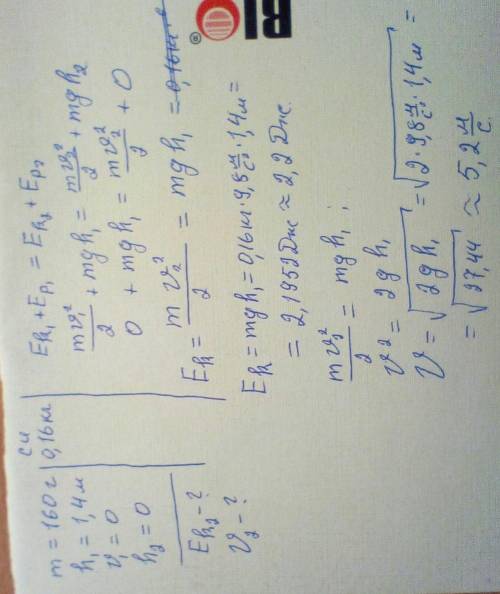 СИ
m = 160 г | 0,16 кг
h₁ = 1,4 м
v₁ = 0
h₂ = 0
Eк₂ - ?
v₂ - ?
Eк₁ + Eр₁ = Eк₂ + Eр₂
mv₁²/2 + mgh₁ = mv₂²/2 + mgh₂
0 + mgh₁ = mv₂²/2 + 0
Eк = mv₂²/2 = mgh₁ =
Eк = mgh₁ = 0,16 кг · 9,8 м/с² · 1,4 м =
= 2,1952 Дж ≈ 2,2 Дж.
mv₂²/2 = mgh₁ ;
v² = 2gh₁
v = √2gh₁ = √2 · 9,8 м/с² · 1,4 м =
= √27,44 ≈ 5,2 м/с.